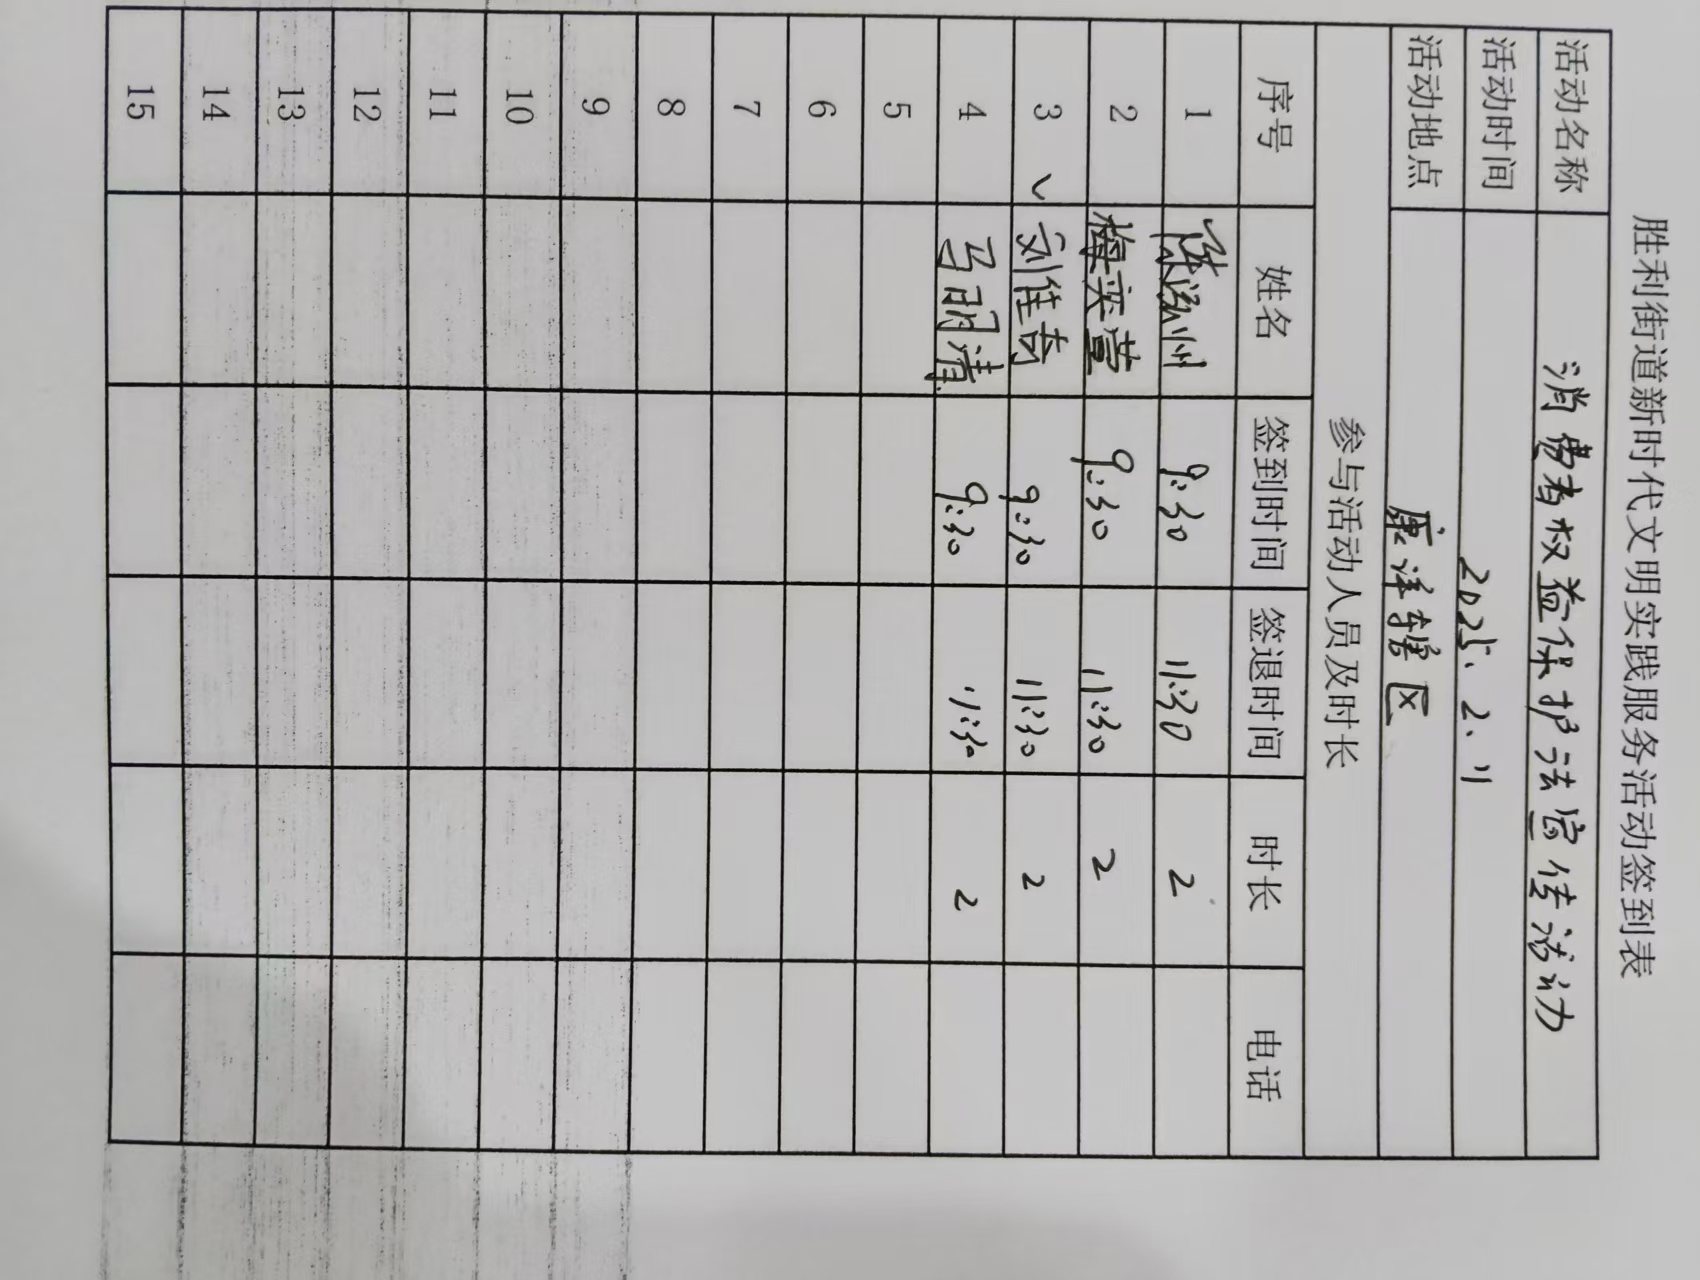 胜利街道新时代文明实践服务活动签到表
活动名称 消费者权益保护法宣传活动
活动时间 2025.2.11
活动地点 康洋辖区
参与活动人员及时长
序号 姓名 签到时间 签退时间 时长 电话
1 陈泓州 9:30 11:30 2
2 梅奕萱 9:30 11:30 2
3 ✓ 刘佳奇 9:30 11:30 2
4 马明清 9:30 11:30 2
5
6
7
8
9
10
11
12
13
14
15